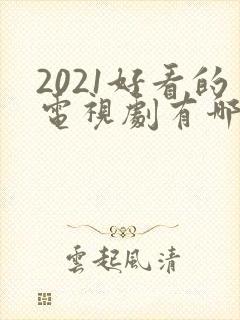 2021好看的
電視劇有哪
雲起風清